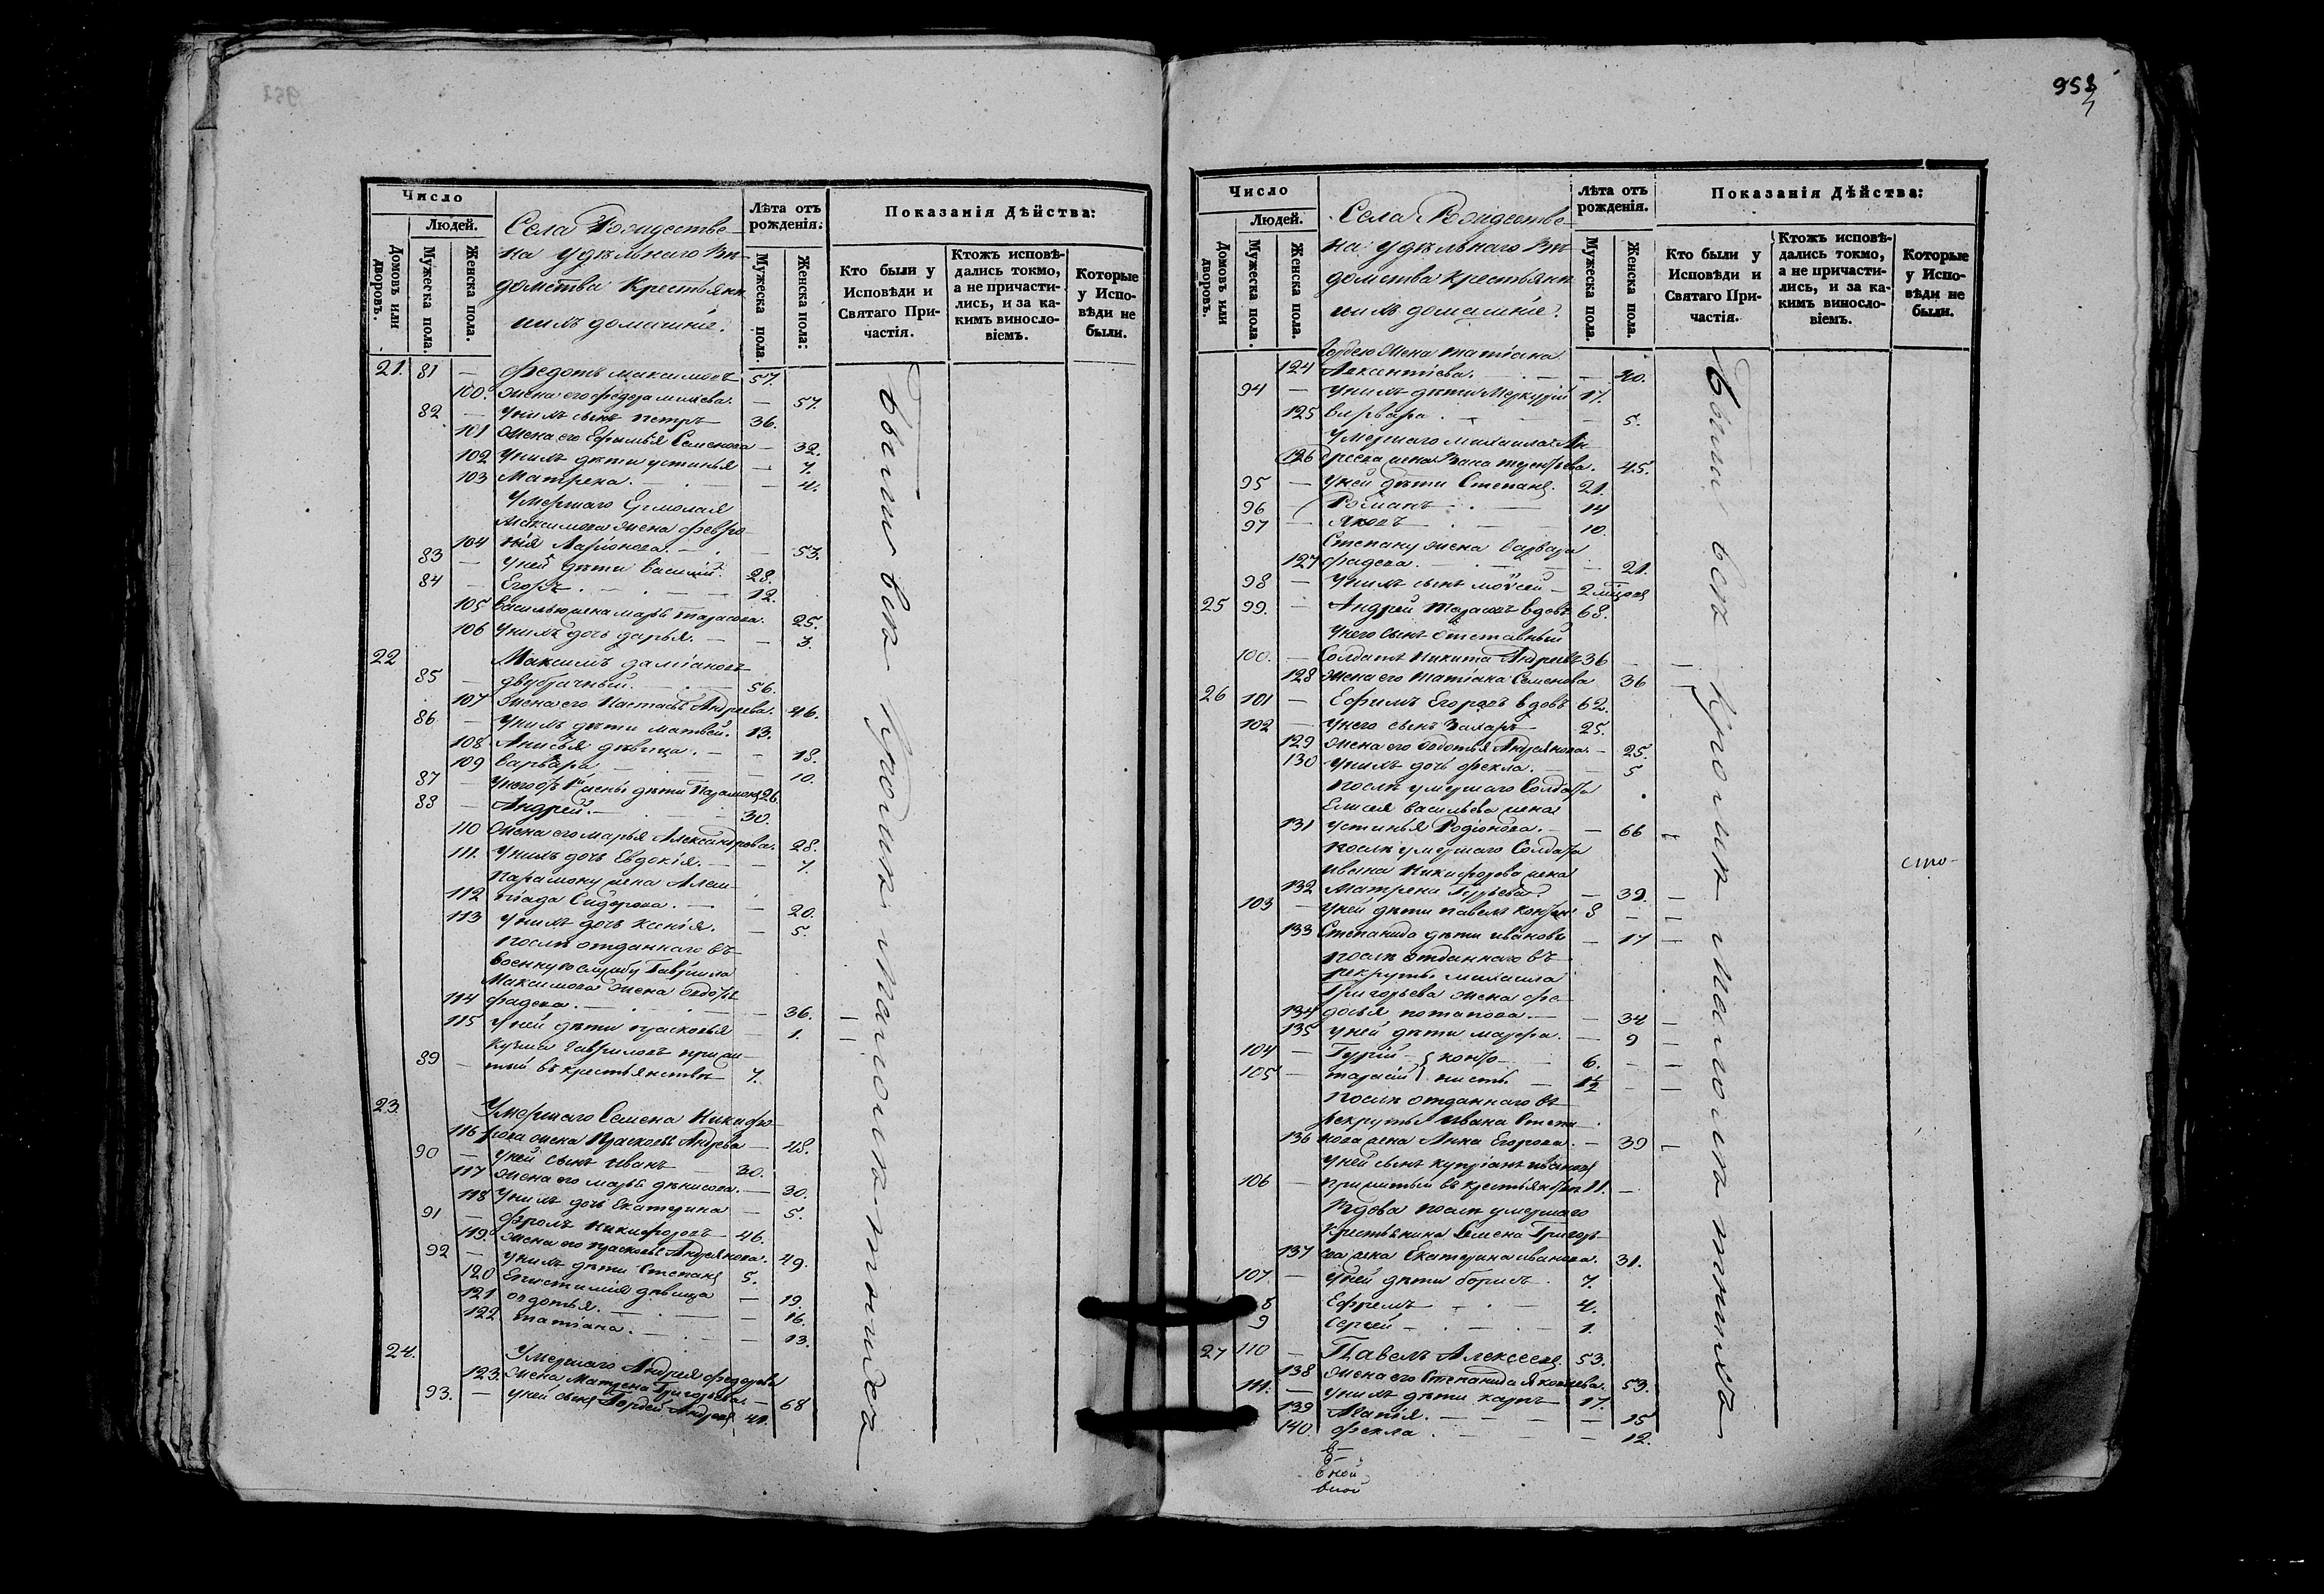 Число
Людей.
Домовъ или дворовъ.
Мужеска пола.
Женска пола.
Села Рождестве-
на удѣльнаго вѣ-
домства крестьяне
и ихъ домашніе.
Лѣта отъ рожденія.
Мужеска пола.
Женска пола:
Показанія Дѣйства:
Кто были у Исповѣди и Святаго Причастія.
Ктожъ исповѣ-
дались токмо,
а не причасти-
лись, и за ка-
кимъ винослo-
віемъ.
Которые
у Испо-
вѣди не
были.
21. 81 — Федотъ Максимовъ 57.
100. жена его Федора — 57.
82 — У нихъ сынъ Петръ 36.
101 жена его Ефимья Семенова — 32.
102 У нихъ дѣти Устинья — 7.
103 Матрена. — 4.
Умершаго Ермолая
Максимова жена Февро-
104 нія Ларіонова. — 53.
83 — У ней дѣти Василій. 28.
84 — Егоръ. — 12.
105 Василью жена Марья Тарасова. 25.
106 У нихъ дочь Дарья. — 3.
22 Максимъ Даміановъ
85 — двубрачный. — 56.
107 жена его Настасья Андреева. 46.
86 — У нихъ дѣти Матвей. 13.
108 Анисья дѣвица. — 18.
109 Варвара — 10.
87 — У него отъ 1й жены дѣти Парамонъ 26.
88 — Андрей. — 30.
110 жена его Марья Александрова. 28.
111. У нихъ дочь Евдокія. — 7.
Парамону жена Алим-
112 піада Сидорова. — 20.
113 У нихъ дочь Ксенія. — 5.
Послѣ отданнаго въ
военную службу Гаврила
Максимова жена
114 Фадеева. — 36. —
115 У ней дѣти Прасковья — 1. —
Кузма Гавриловъ
89 — въ крестьянство 7.
23. Умершаго Семена Никифо-
116 рова жена Прасковья Андреева — 48.
90 — У ней сынъ Иванъ — 30.
117 жена его Марья Денисова. — 30.
118 У нихъ дочь Екатерина — 5.
91 — Фролъ Никифоровъ — 46.
119. жена его Прасковья Андреянова. 49.
92 — У нихъ дѣти Степанъ 5.
120 Епистимія дѣвица — 19.
121 Овдотья. — 16.
122 Татіана. — 13.
24. Умершаго Андрея Федорова
123. жена Матрена Григорьева. — 68
93. — У ней сынъ Гордей Андреевъ 41.
Были вси
953
Число
Людей.
Домовъ или дворовъ.
Мужеска пола.
Женска пола.
Села Рождестве-
на удѣльнаго вѣ-
домства крестьяне
и ихъ домашніе.
Лѣта отъ рожденія.
Мужеска пола.
Женска пола.
Показанія Дѣйства:
Кто были у Исповѣди и Святаго Причастія.
Ктожъ исповѣ-
дались токмо,
а не причасти-
лись, и за ка-
кимъ виносло-
віемъ.
Которые
у Испо-
вѣди не
были.
Гордею жена Татіана
124 — 40.
94 — У нихъ дѣти Меркурій 17.
125 Варвара. — 5.
Умершаго Михаила Ан-
126 дреева жена 45.
95 — У ней дѣти Степанъ. 21.
96 Романъ. — 14
97 — Яковъ — 10.
Степану жена Варвара
127 Фадеева. — 21.
98 — У нихъ сынъ Моѵсей — 2
25 99. — Андрей Тарасовъ вдовъ 68.
У него сынъ отставный
100. — солдатъ Никита Андреевъ 36 — —
128 жена его Татіана Семенова 36 —
26 101 — Ефимъ Егоровъ вдовъ 62.
102 — У него сынъ Захаръ — 25.
129 жена его Овдотья Андреянова. — 25.
130 У нихъ дочь Фекла. — 5
Послѣ умершаго солдата
Елисея Васильева жена
131 Устинья Родіонова. — 66 —
Послѣ умершаго солдата
Ивана Никифорова жена
132 Матрена — 39. —
103 — У ней дѣти Павелъ 8 — —
133 Степанида дѣти Ивановы — 17 —
Послѣ отданнаго въ
рекруты Михаила
Григорьева жена Фе-
134 досья Потапова. — 34 —
135 У ней дѣти Марфа. — 9 —
104 — Гурій 6. — —
105 — Тарасій 1½ — —
Послѣ отданнаго въ
рекруты Ивана Степа-
136 нова жена Анна Егорова. — 39 —
У ней сынъ Купріанъ Ивановъ
106 — въ крестьянство 11. —
Вдова послѣ умершаго
крестьянина Семена Григорь-
137 ева жена Екатерина Иванова. 31.
107. — У ней дѣти Борисъ. 7.
8 Ефремъ — 4.
9 Сергей — 1.
27 110 — Павелъ Алексеевъ 53.
138 жена его Степанида Яковлева. 53.
111. — У нихъ дѣти Карпъ — 17.
139 Агапія. — 15
140. Фекла. — 12.
Были вси